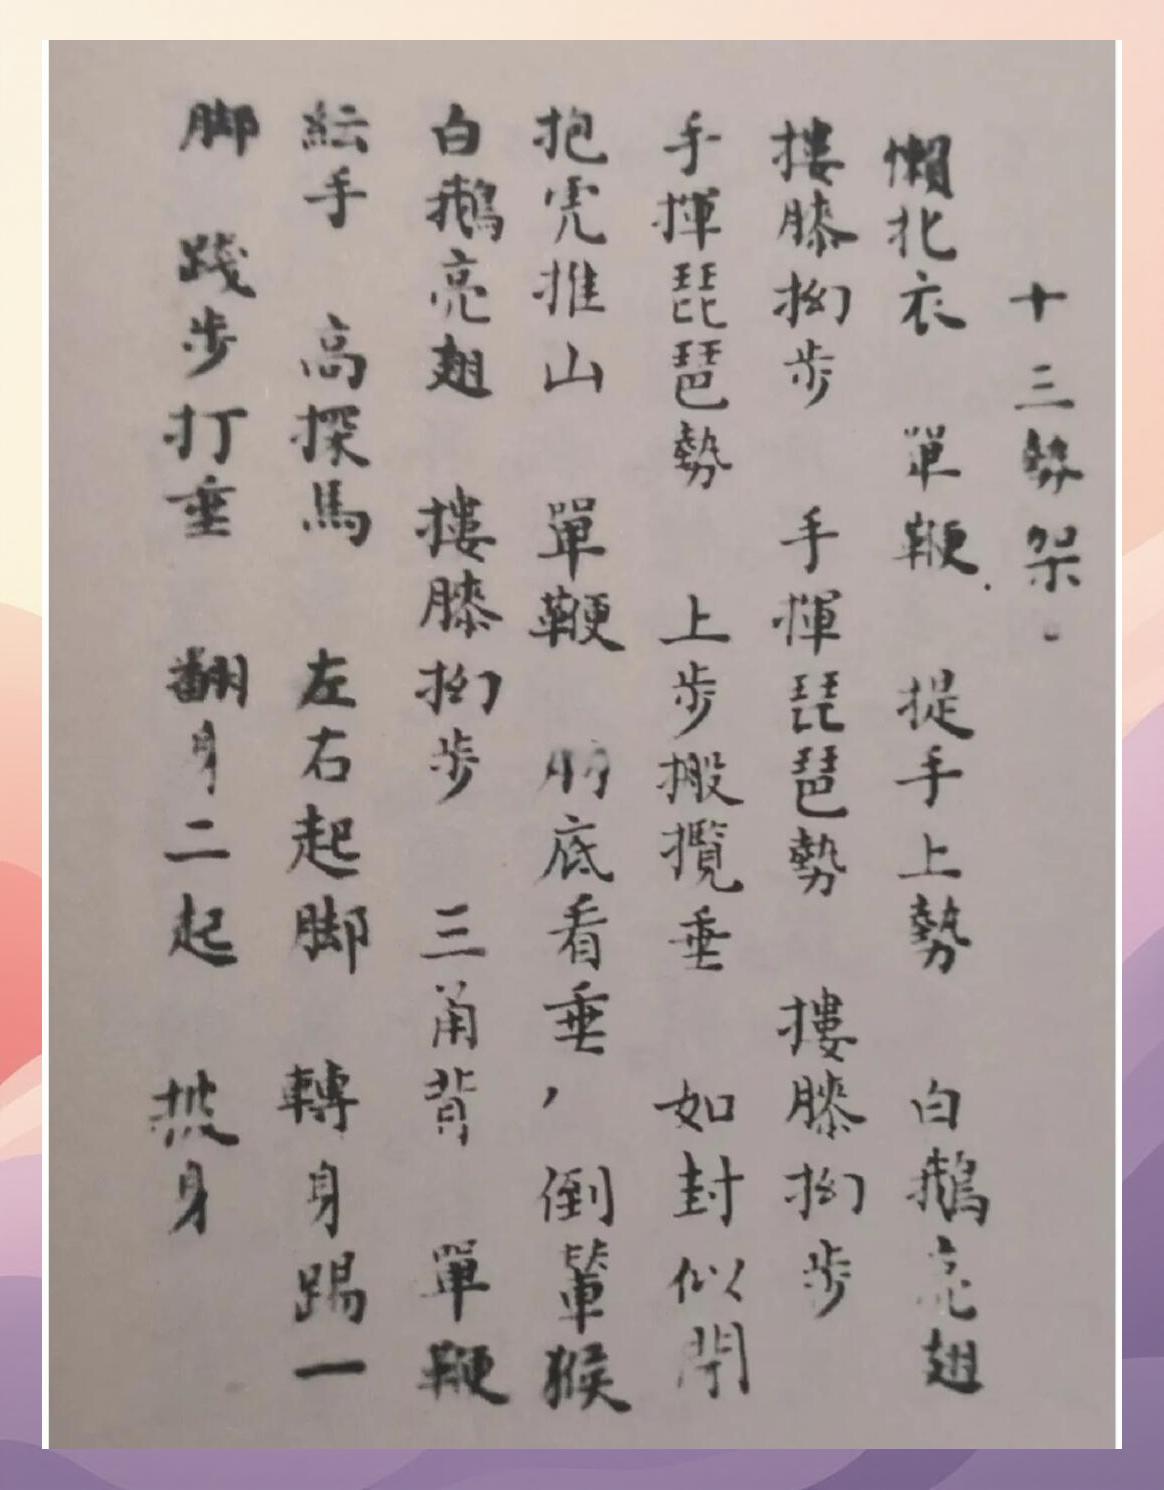 十三勢架
懶北衣 單鞭 提手上勢 白鵝亮翅
摟膝拗步 手揮琵琶勢 摟膝拗步
手揮琵琶勢 上步搬攬垂 如封似閉
抱虎推山 單鞭 肘底看垂，倒輦猴
白鵝亮翅 摟膝拗步 三甬背 單鞭
紜手 高探馬 左右起脚 轉身踢一
脚 踐步打垂 翻身二起 披身